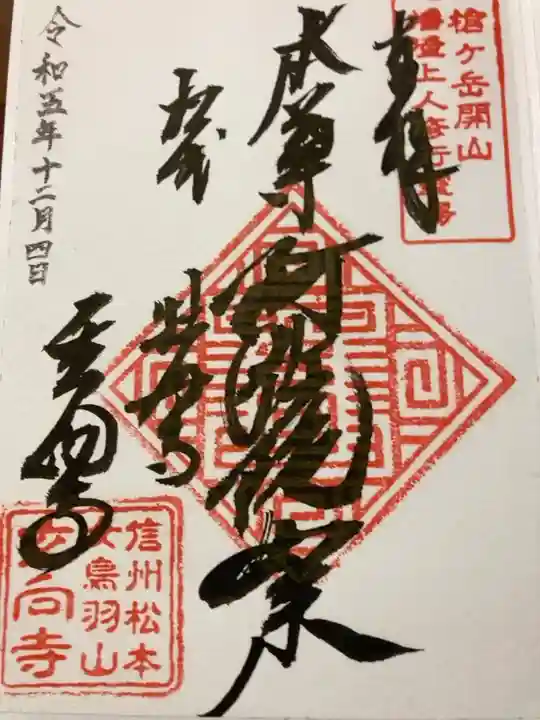 槍ヶ岳開山
播隆上人修行霊場
奉拝
本尊
玄向寺
令和五年十二月四日
信州松本
女鳥羽山
玄向寺